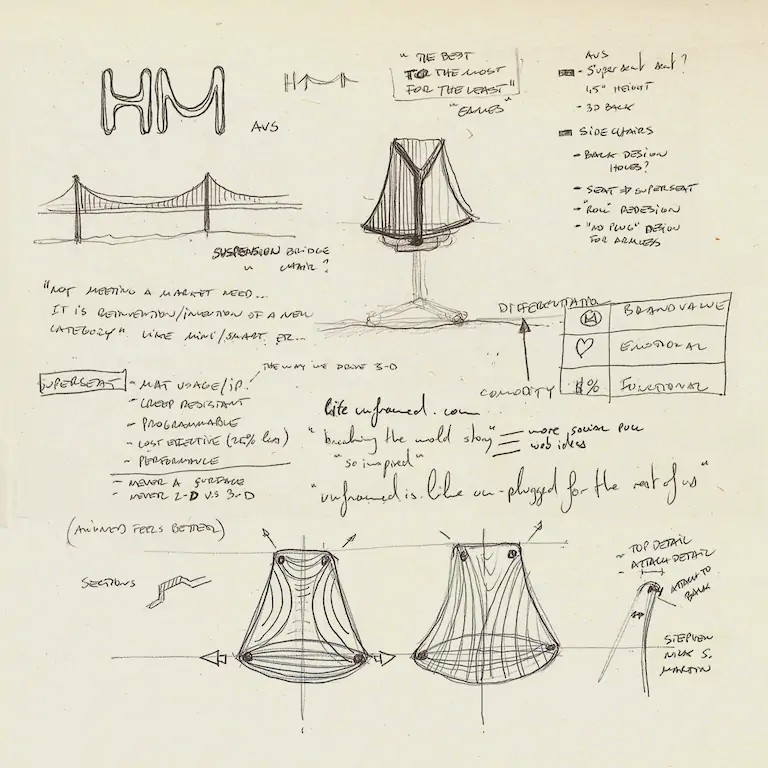 HM
HM
AVS
"THE BEST
FOR THE MOST
FOR THE LEAST"
"EAMES"
AVS
- Superseat seat?
1,5" HEIGHT
- 3D BACK
SIDE CHAIRS
- BACK DESIGN
HOLES?
- SEAT → SUPERSEAT
- REDESIGN
- "NO PLUG" DESIGN
FOR ARMLESS
SUSPENSION BRIDGE
CHAIR?
"NOT MEETING A MARKET NEED...
IT IS REINVENTION/INVENTION OF A NEW
CATEGORY" LIKE MINI/SMART, ETC...
DIFFERENTIATION
COMODITY
M BRAND VALUE
EMOTIONAL
$% FUNCTIONAL
SUPERSEAT
- MAT USAGE/IP.
THE WAY WE DROVE 3-D
- CREEP RESISTANT
- PROGRAMMABLE
- COST EFFECTIVE (25% less)
- PERFORMANCE
- NEVER A SURFACE
- NEVER 2-D VS 3-D
life unframed.com
"breaking the mold story"
more social pull
web ideas
"so inspired"
"unframed is like un-plugged for the rest of us"
(ALIGNED FEELS BETTER)
SECTIONS
- TOP DETAIL
- ATTACH DETAIL
ATTACH TO
BACK
STEPHEN
NICK S.
MARTIN